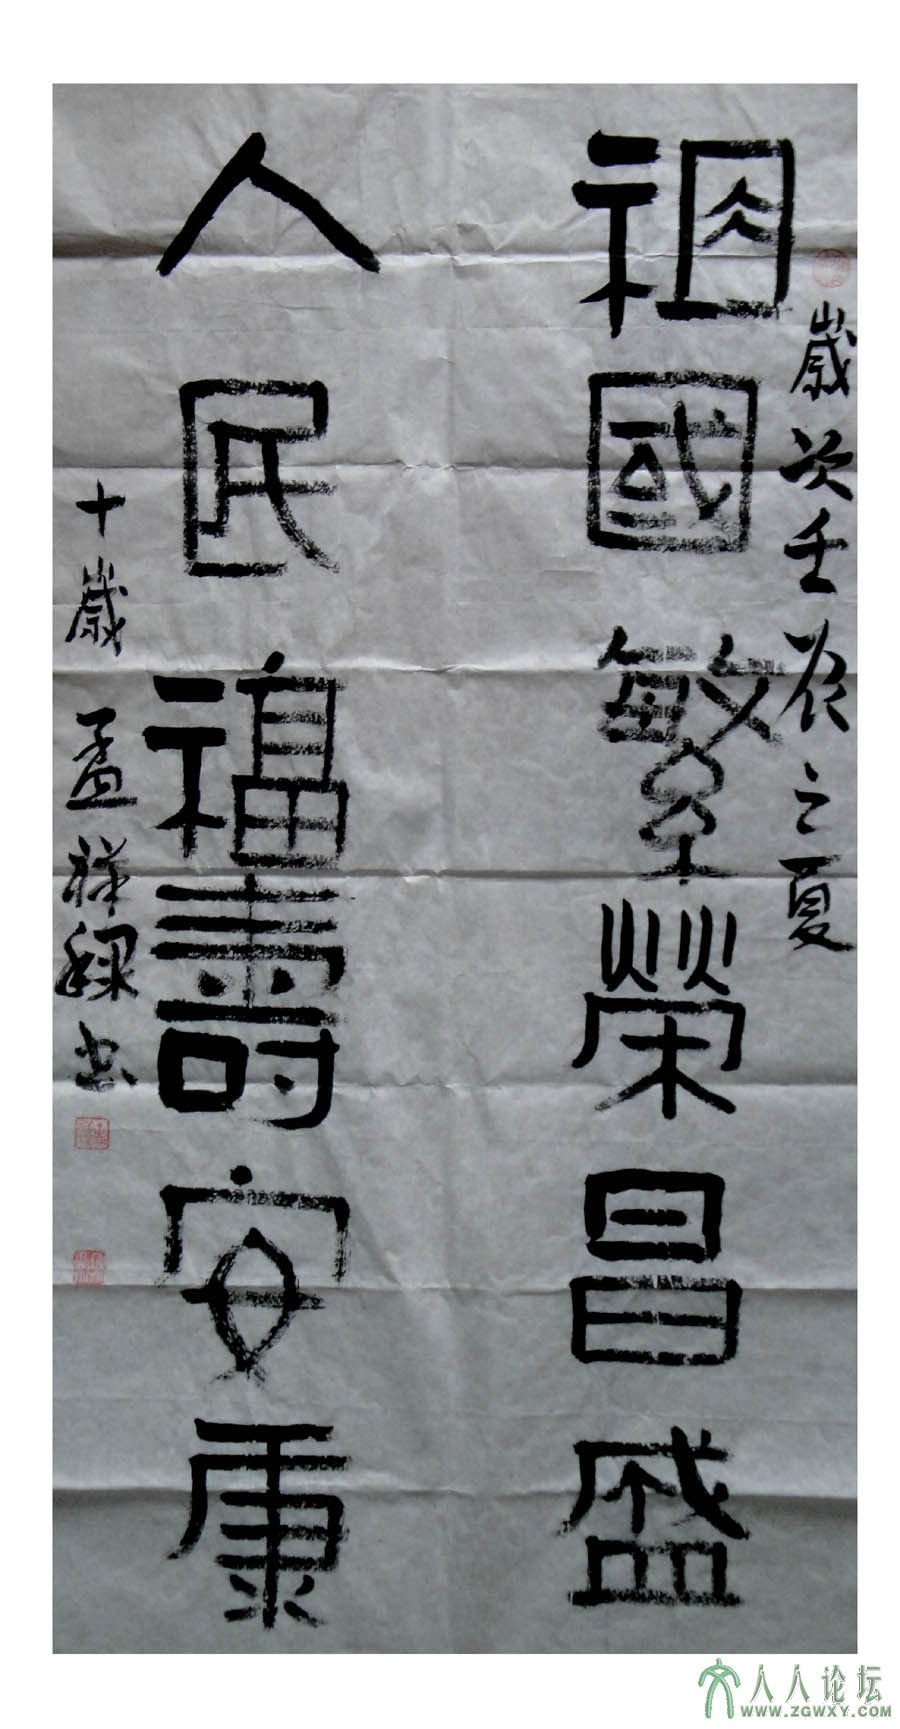 歲次壬辰之夏
祖國繁榮昌盛
人民福壽安康
十歲孟祥书
人人论坛
WWW.ZGWXY.COM